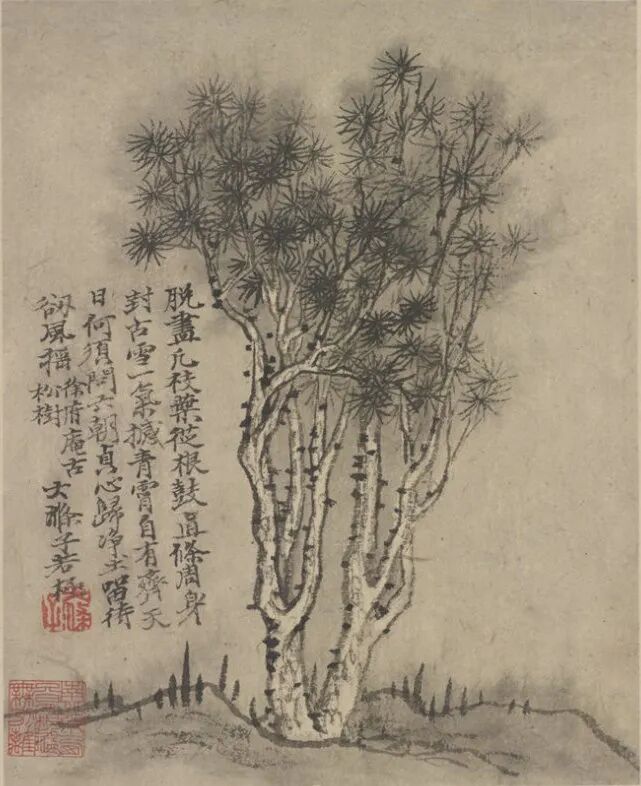 脱盡凡枝葉從根鼓直條周身
封古雪一氣撼青霄自有齊天
日何須問六朝貞心歸淨土留待
劫風搖
徐府庵古
松樹
大滌子若極